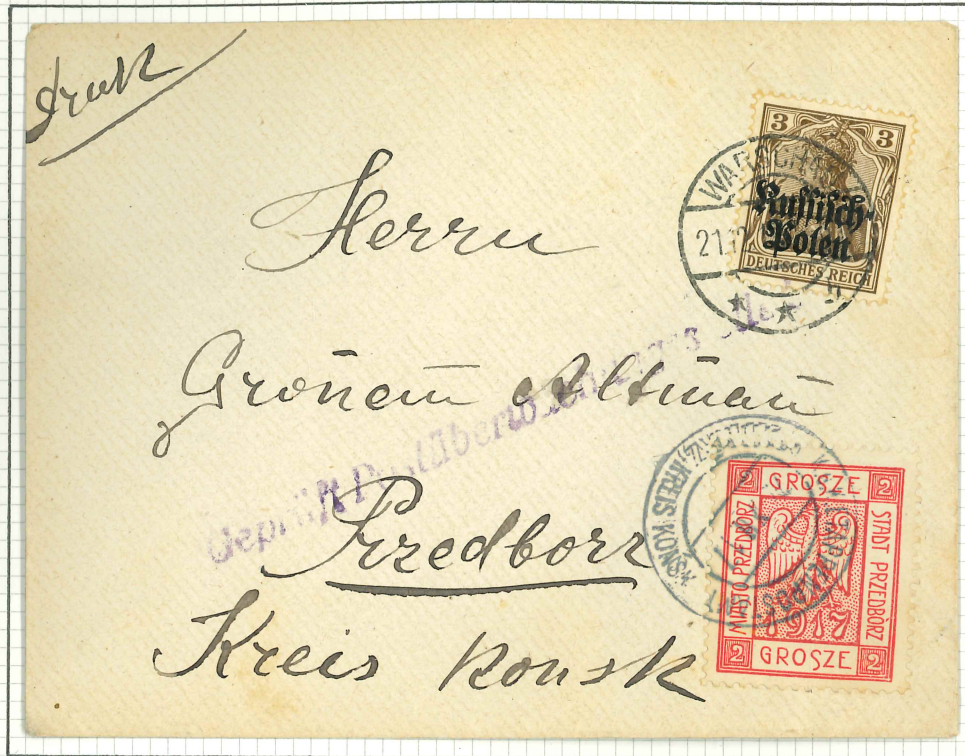 Druck
Herrn
Gronem Altman
Przedborz
Kreis Konsk
3 3
Russisch-
Polen
DEUTSCHES REICH
WARSCHAU
21.12
* *
Geprüft Postüberwachungs
2 GROSZE 2
MIASTO PRZEDBÓRZ
STADT PRZEDBÓRZ
1917
2 GROSZE 2
KREIS KONSK